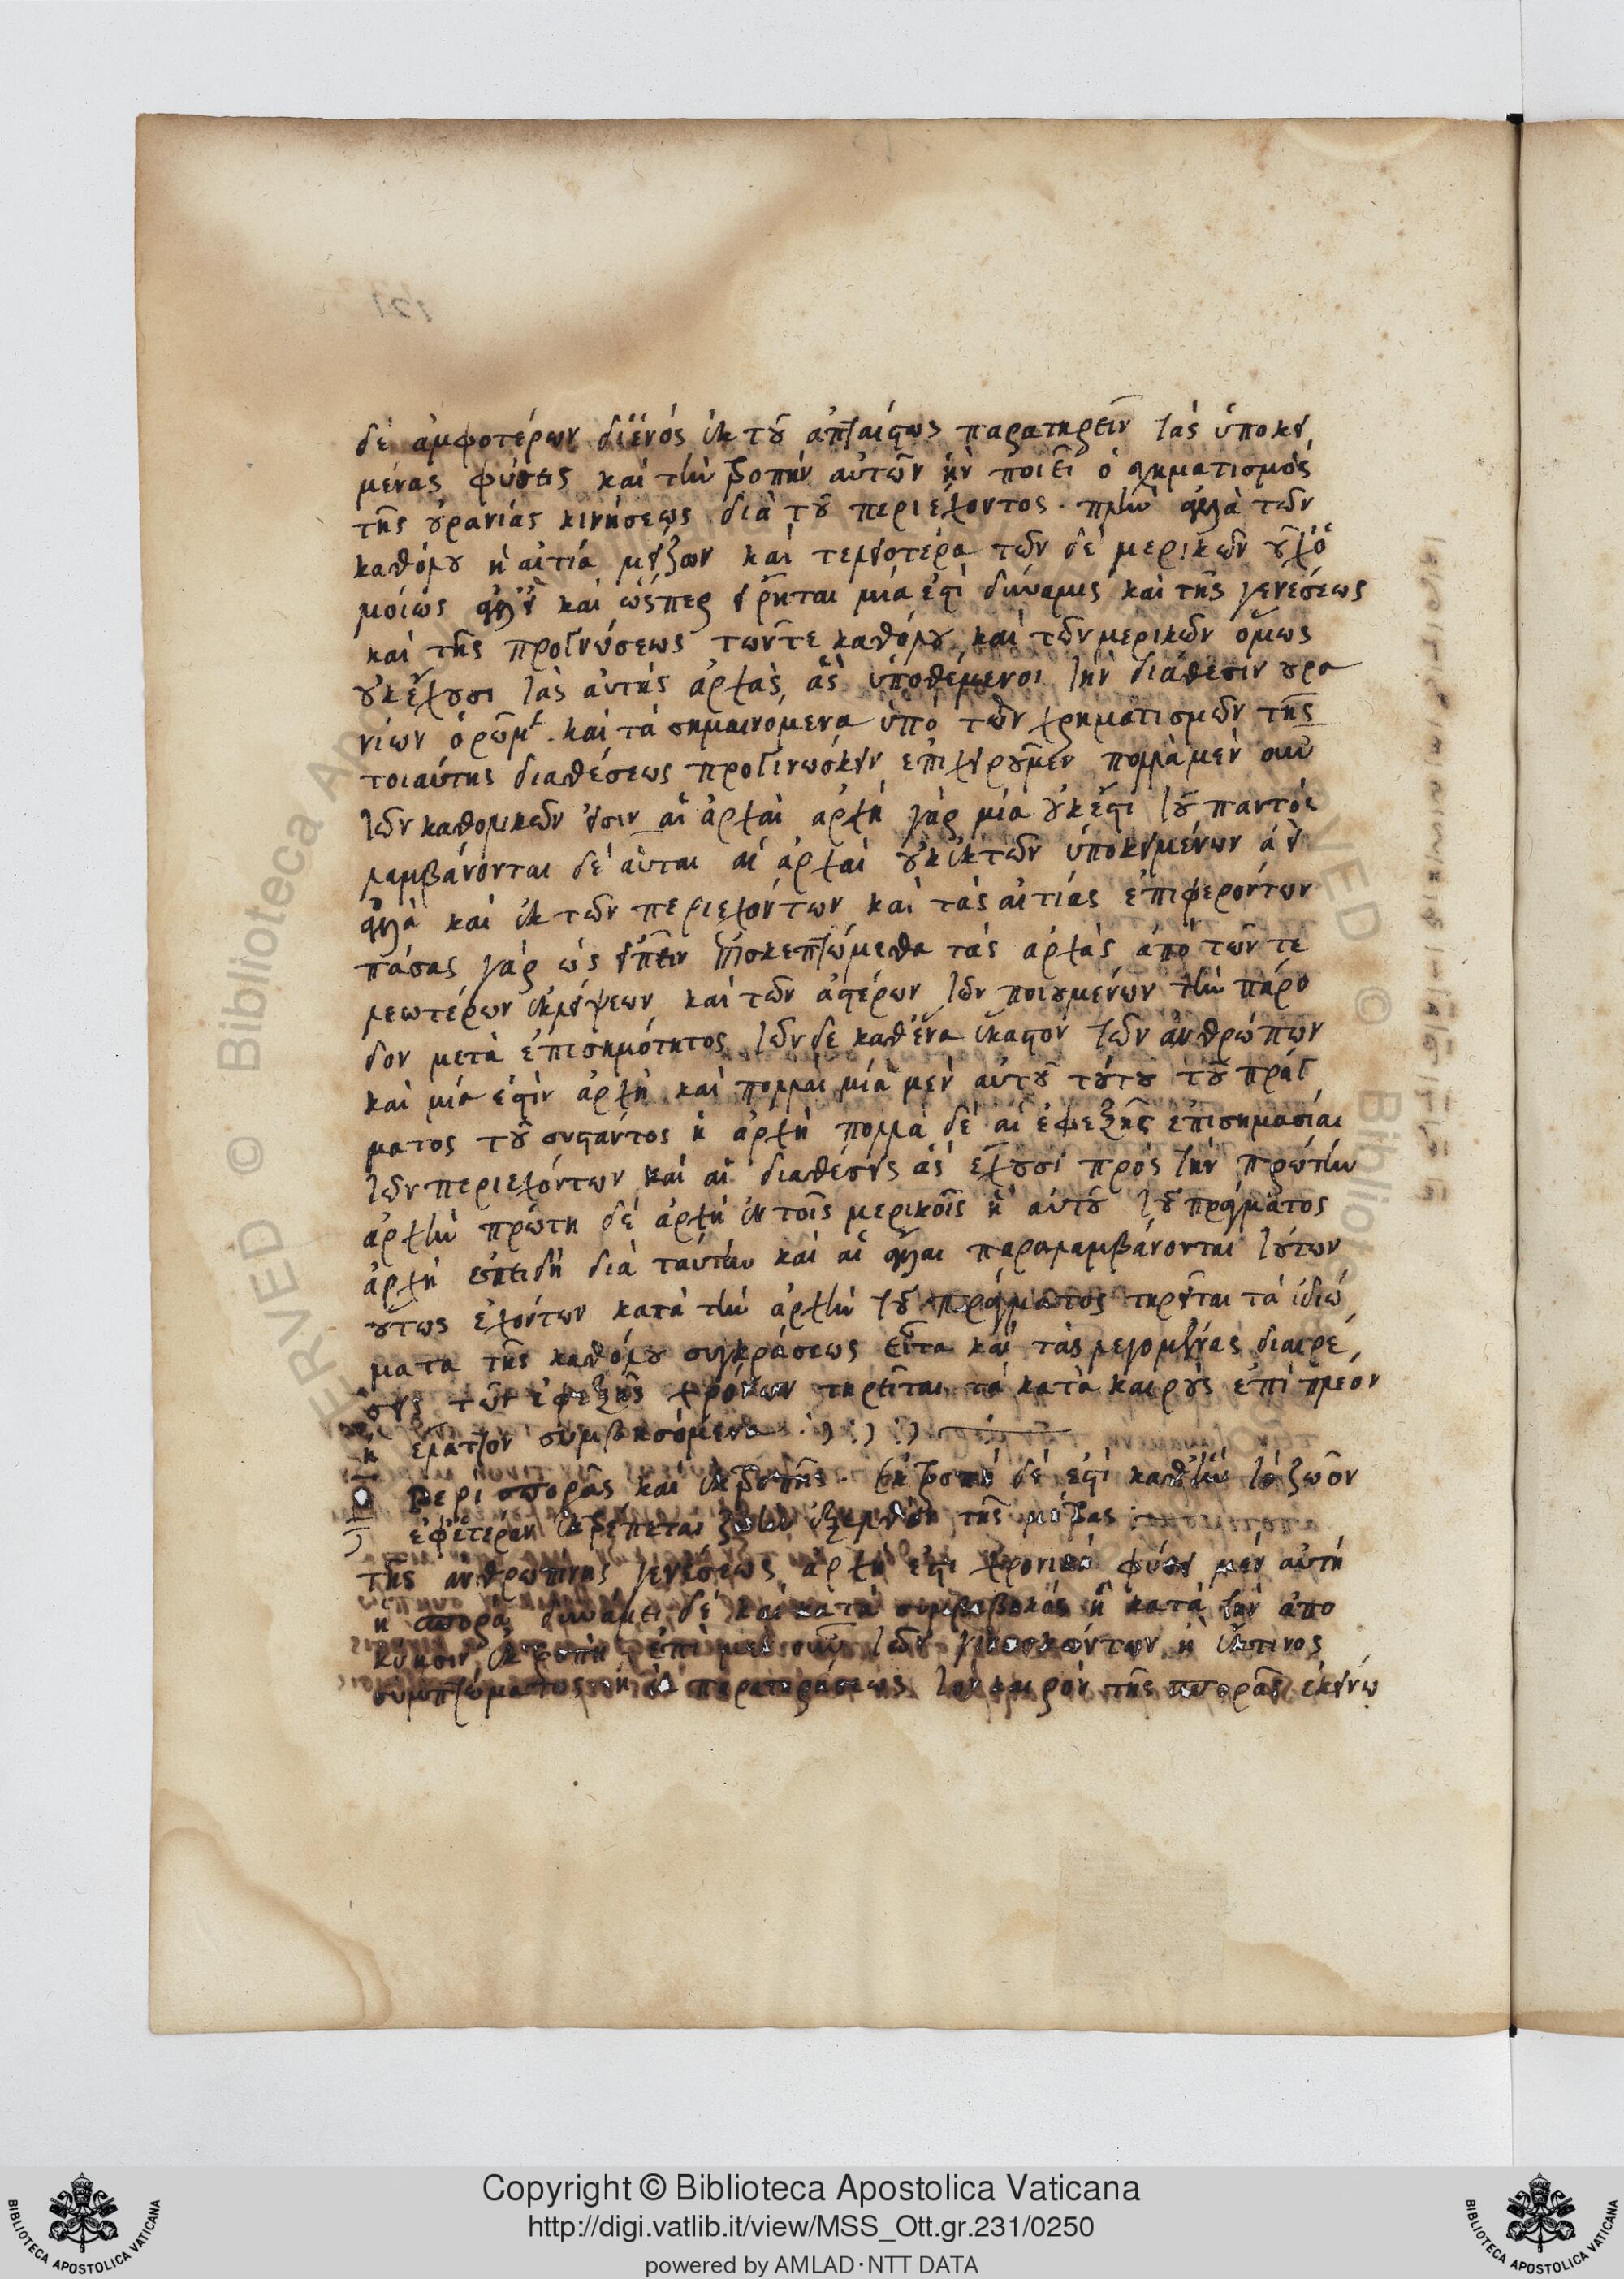 δὲ ἀμφοτέρων διἑνός ἐκ τοῦ ἀπταίστως παρατηρεῖν τὰς ὑποκει
μένας φύσεις καὶ τὴν ῥοπὴν αὐτῶν ἣν ποιεῖ ὁ χηματισμὸς
τῆς οὐρανίας κινήσεως διὰ τοῦ περιέχοντος. πλὴν ἀλλὰ τῶν
καθόλου ἡ αἰτία μείζων καὶ τελειοτέρα τῶν δὲ μερικῶν οὐχ ὁ
μοίως ἀλλ' εἰ καὶ ὥσπερ εἴρηται μία ἐστὶ δύναμις καὶ τῆς γενέσεως
καὶ τῆς προγνώσεως τῶν τε καθόλου καὶ τῶν μερικῶν ὅμως
οὐκ ἔχουσι τὰς αὐτὰς ἀρχὰς, ἃς ὑποθέμενοι τὴν διάθεσιν οὐρα
νίων ὁρῶμεν. καὶ τὰ σημαινόμενα ὑπὸ τῶν χρηματισμῶν τῆς
τοιαύτης διαθέσεως προγινώσκειν ἐπιχειροῦμεν πολλὰ μὲν οὖν
τῶν καθολικῶν εἰσιν αἱ ἀρχαὶ ἀρχὴ γὰρ μία οὐκ ἔστι τοῦ παντός
λαμβάνονται δὲ αὗται αἱ ἀρχαὶ οὐκ ἐκ τῶν ὑποκειμένων ἀεὶ
ἀλλὰ καὶ ἐκ τῶν περιεχόντων καὶ τὰς αἰτίας ἐπιφερόντων
πάσας γὰρ ὡς εἰπεῖν ἐπισκεπτώμεθα τὰς ἀρχὰς ἀπὸ τῶν τε
λεωτέρων ἐκλείψεων καὶ τῶν ἀστέρων τῶν ποιουμένων τὴν πάρο
δον μετὰ ἐπισημότητος τῶν δε καθἕνα ἕκαστον τῶν ἀνθρώπων
καὶ μία ἐστὶν ἀρχὴ καὶ πολλαὶ μία μὲν αὐτοῦ τούτου τοῦ πράγ
ματος τοῦ συστάντος ἡ ἀρχὴ πολλὰ δὲ αἱ ἐφεξῆς ἐπισημασίαι
τῶν περιεχόντων καὶ αἱ διαθέσεις ἃς ἔχουσι πρὸς τὴν πρώτην
ἀρχὴν πρώτη δὲ ἀρχὴ ἐν τοῖς μερικοῖς ἡ αὐτοῦ τοῦ πράγματος
ἀρχὴ ἐπειδὴ διὰ ταύτην καὶ αἱ ἄλλαι παραλαμβάνονται τούτων
οὕτως ἐχόντων κατὰ τὴν ἀρχὴν τοῦ πράγματος τηρεῖται τὰ ἰδιώ
ματα τῆς καθόλου συγκράσεως εἶτα καὶ τὰς λεγομένας διαιρέ
σεις τῶν ἐφεξῆς χρόνων τηρεῖται τὰ κατὰ καιροὺς ἐπὶ πλέον
ἢ ἔλαττον συμβησόμενα
Περὶ σπορᾶς καὶ ἐκτροπῆς. Ἐκτροπὴ δέ ἐστι καθ' ἣν τὸ ζῶον
ἐφ' ἑτέραν ἐκτρέπεται ζωὴν ἐξελθὸν τῆς μήτρας
Τῆς ἀνθρωπίνης γενέσεως ἀρχή ἐστι χρονικὴ φύσει μὲν αὐτὴ
ἡ σπορά, δυνάμει δὲ καὶ κατὰ συμβεβηκὸς ἡ κατὰ τὴν ἀπο
κύησιν ἐκτροπή ἐπὶ μὲν οὖν τῶν γινωσκόντων ἢ ἔκ τινος
συμπτώματος ἢ ἐκ παρατηρήσεως τὸν καιρὸν τῆς σπορᾶς ἐκείνῳ
Copyright © Biblioteca Apostolica Vaticana
http://digi.vatlib.it/view/MSS_Ott.gr.231/0250
powered by AMLAD·NTT DATA
BIBLIOTECA APOSTOLICA VATICANA
BIBLIOTECA APOSTOLICA VATICANA